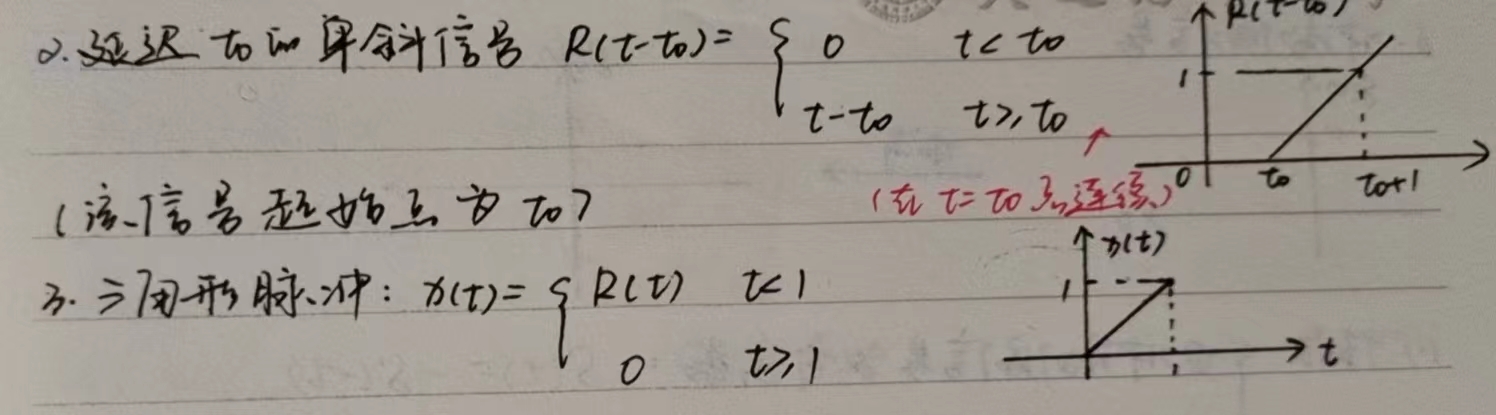 2. 延迟 t0 的单斜信号 R(t-t0) = { 0 t < t0
t-t0 t≥t0
(该信号起始点为 t0)
(在 t=t0 点连续)
3. 三角形脉冲: x(t) = { R(t) t<1
0 t≥1
R(t-t0)
1
0 t0 t0+1
x(t)
1
1 t